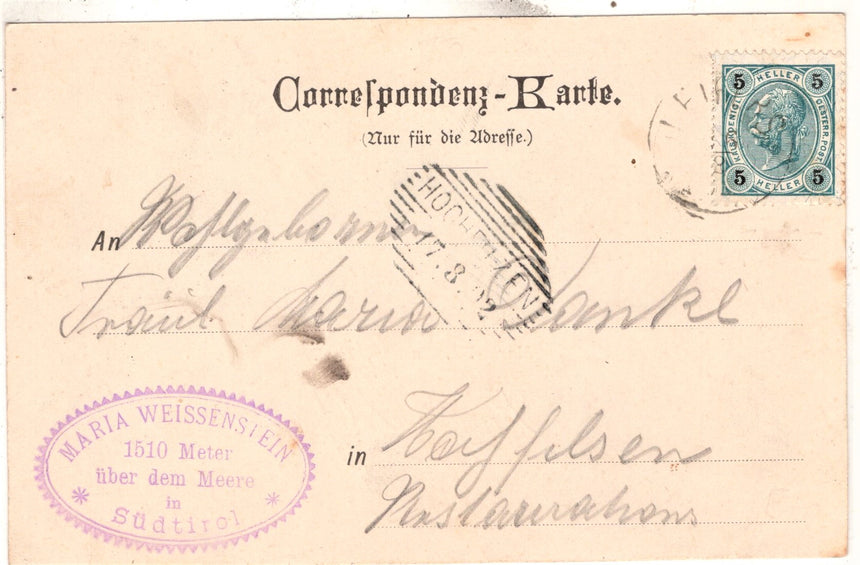 Correspondenz-Karte.
(Nur für die Adresse.)
5 HELLER 5
KAIS. KOENIGL. OESTERR. POST.
5 HELLER 5
HOCHE
17.8.02
An Wohlgeborne
Fräul. Maria
in
Restaurations
MARIA WEISSENSTEIN
1510 Meter
über dem Meere
in
Südtirol